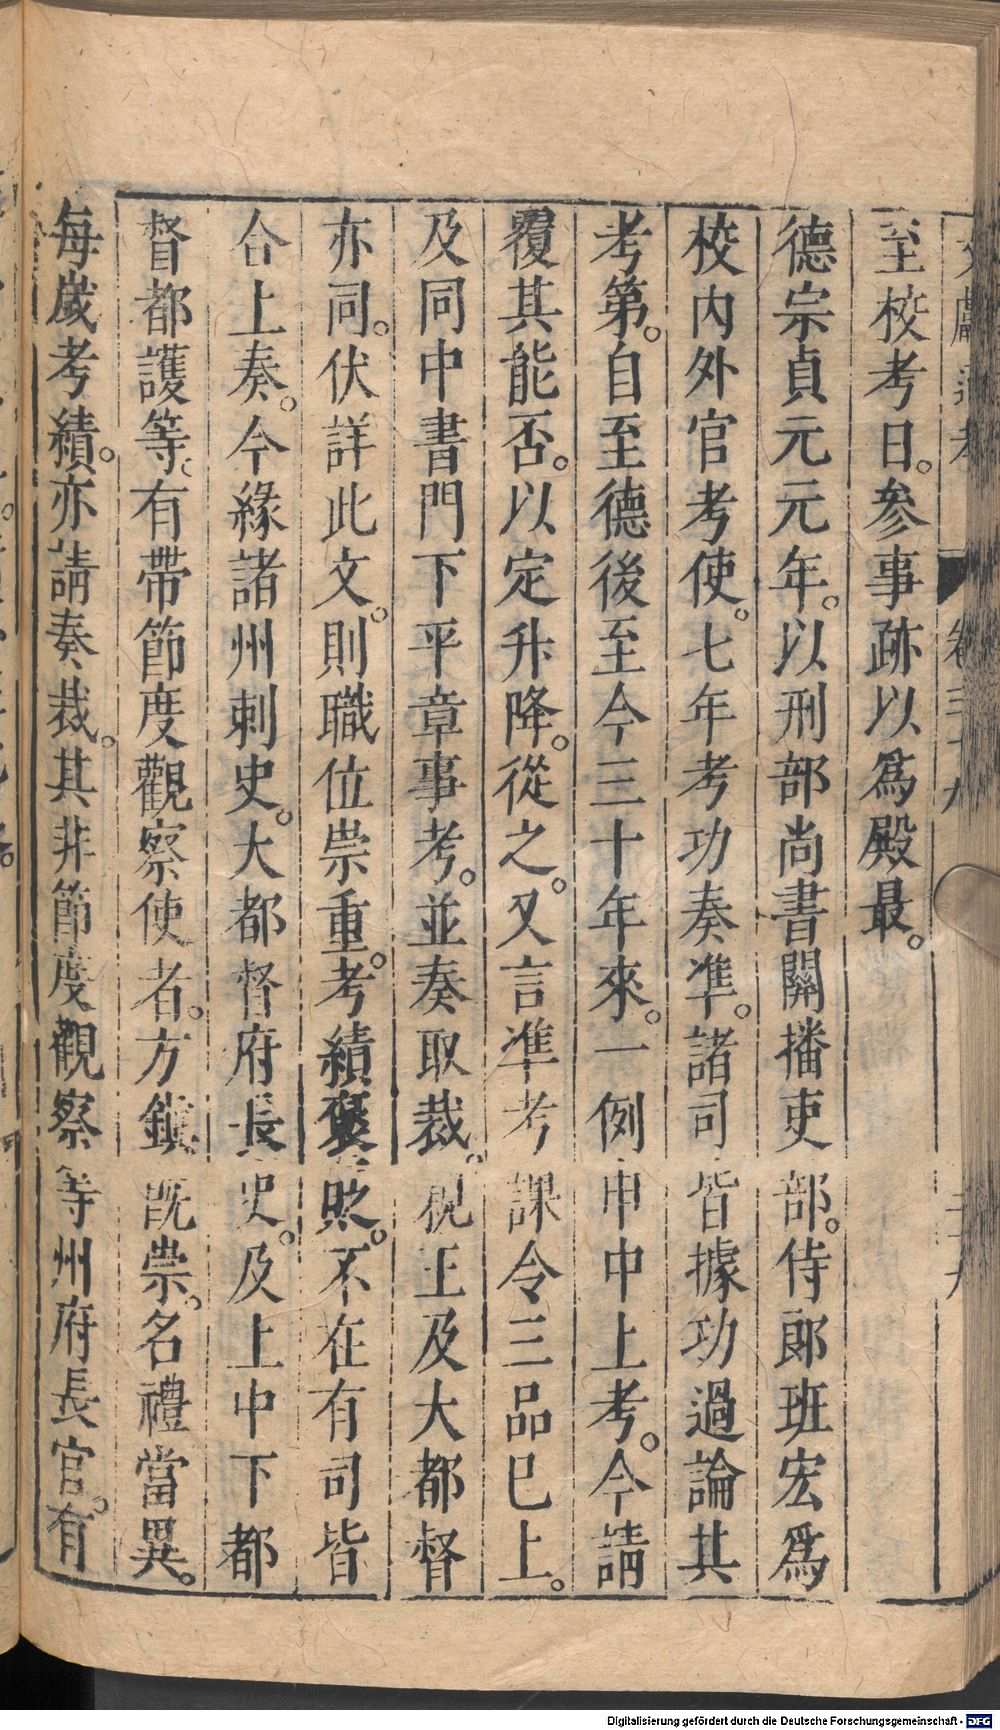 至校考日。參事跡以爲殿最。
德宗貞元元年。以刑部尚書關播吏部。侍郎班宏爲
校內外官考使。七年考功奏準。諸司皆據功過論其
考第。自至德後至今三十年來。一例申中上考。今請
覆其能否。以定升降。從之。又言準考課令三品已上。
及同中書門下平章事考。並奏取裁。親王及大都督
亦同。伏詳此文。則職位崇重。考績褒貶。不在有司皆
合上奏。今緣諸州刺史。大都督府長史。及上中下都
督都護等。有帶節度觀察使者。方鎭旣崇。名禮當異。
每歲考績。亦請奏裁。其非節度觀察等州府長官。有
Digitalisierung gefördert durch die Deutsche Forschungsgemeinschaft - DFG